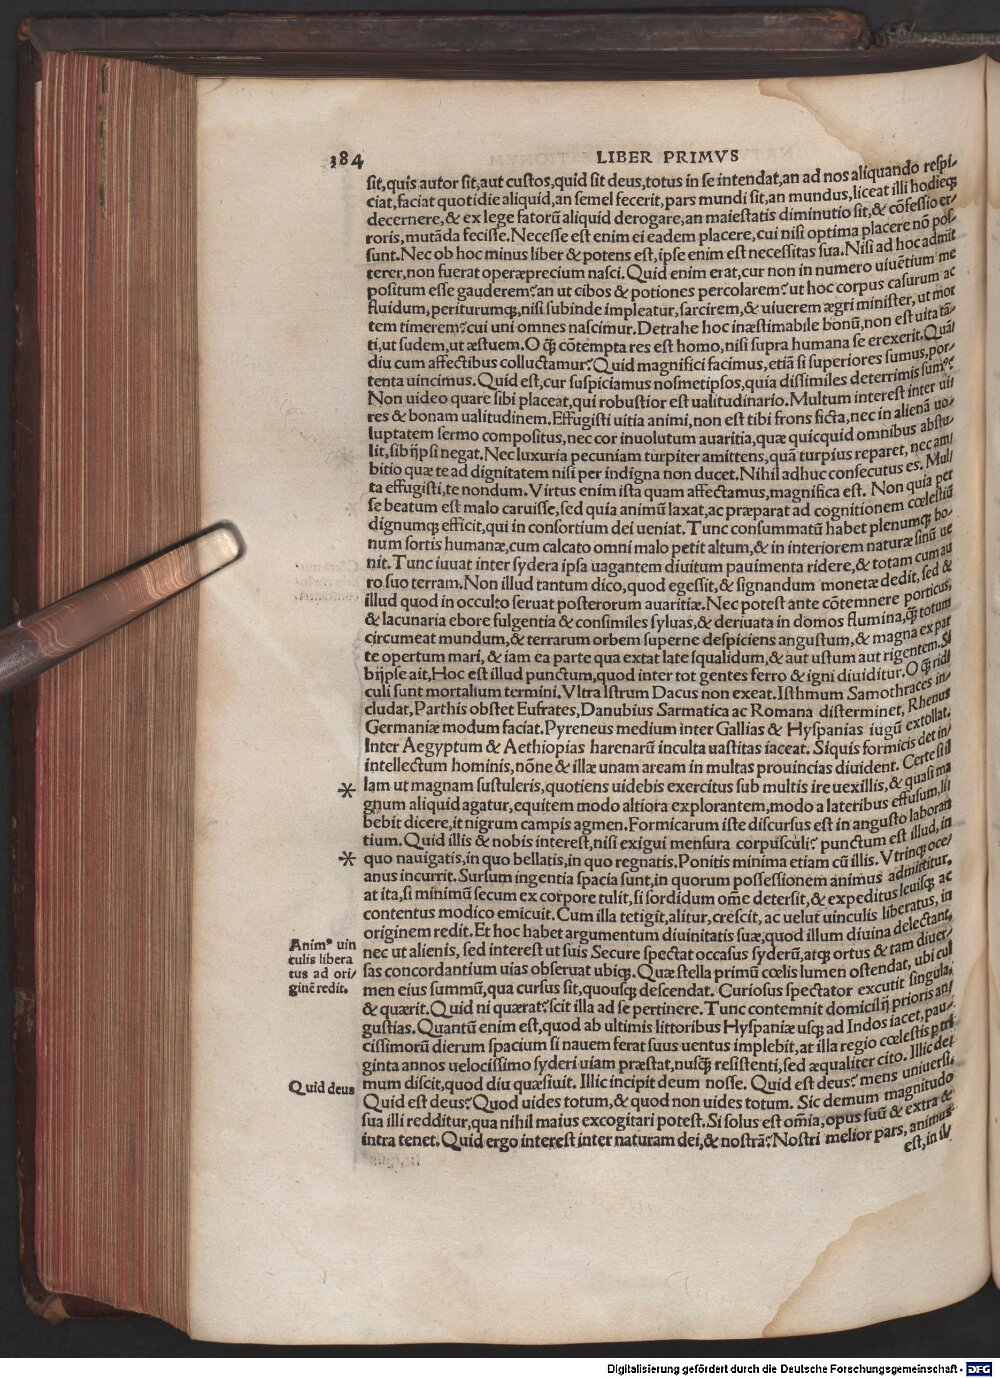 384
LIBER PRIMVS
sit,quis autor sit,aut custos,quid sit deus,totus in se intendat,an ad nos aliquando respi-
ciat,faciat quotidie aliquid,an semel fecerit,pars mundi sit,an mundus,liceat illi hodieq;
decernere,& ex lege fatorū aliquid derogare,an maiestatis diminutio sit,& cōfessio er-
roris,mutāda fecisse.Necesse est enim ei eadem placere,cui nisi optima placere nō pos-
sunt.Nec ob hoc minus liber & potens est,ipse enim est necessitas sua.Nisi ad hoc admit
terer,non fuerat operæprecium nasci.Quid enim erat,cur non in numero uiuētium me
positum esse gauderem?an ut cibos & potiones percolarem?ut hoc corpus casurum ac
fluidum,periturumq;,nisi subinde impleatur,sarcirem,& uiuerem ægri minister,ut mor
tem timerem?cui uni omnes nascimur.Detrahe hoc inæstimabile bonū,non est uita tā-
ti,ut sudem,ut æstuem.O q̄ cōtempta res est homo,nisi supra humana se erexerit.Quā/
diu cum affectibus colluctamur?Quid magnifici facimus,etiā si superiores sumus,por-
tenta uincimus.Quid est,cur suspiciamus nosmetipsos,quia dissimiles deterrimis sumꝰ?
Non uideo quare sibi placeat,qui robustior est ualitudinario.Multum interest inter uii
res & bonam ualitudinem.Effugisti uitia animi,non est tibi frons ficta,nec in alienā uo/
luptatem sermo compositus,nec cor inuolutum auaritia,quæ quicquid omnibus abstu/
lit,sibijpsi negat.Nec luxuria pecuniam turpiter amittens,quā turpius reparet,nec am/
bitio quæ te ad dignitatem nisi per indigna non ducet.Nihil adhuc consecutus es.Mul/
ta effugisti,te nondum.Virtus enim ista quam affectamus,magnifica est. Non quia per
se beatum est malo caruisse,sed quia animū laxat,ac præparat ad cognitionem cœlestiū
dignumq; efficit,qui in consortium dei ueniat.Tunc consummatū habet plenumq; bo/
num sortis humanæ,cum calcato omni malo petit altum,& in interiorem naturæ sinū ue
nit.Tunc iuuat inter sydera ipsa uagantem diuitum pauimenta ridere,& totam cum au
ro suo terram.Non illud tantum dico,quod egessit,& signandum monetæ dedit,sed &
illud quod in occulto seruat posterorum auaritiæ.Nec potest ante cōtemnere porticus,
& lacunaria ebore fulgentia & consimiles syluas,& deriuata in domos flumina,q̄ totum
circumeat mundum,& terrarum orbem superne despiciens angustum,& magna ex par
te opertum mari,& iam ea parte qua extat late squalidum,& aut ustum aut rigentem.Si
bijpse ait,Hoc est illud punctum,quod inter tot gentes ferro & igni diuiditur.O q̄ ridi
culi sunt mortalium termini.Vltra Istrum Dacus non exeat.Isthmum Samothraces in-
cludat,Parthis obstet Eufrates,Danubius Sarmatica ac Romana disterminet, Rhenus
Germaniæ modum faciat.Pyreneus medium inter Gallias & Hyspanias iugū extollat.
Inter Aegyptum & Aethiopias harenarū inculta uastitas iaceat. Siquis formicis det in/
intellectum hominis,nōne & illæ unam aream in multas prouincias diuident. Certe si il
lam ut magnam sustuleris,quotiens uidebis exercitus sub multis ire uexillis,& quasi ma
gnum aliquid agatur,equitem modo altiora explorantem,modo a lateribus effusum,li/
bebit dicere,it nigrum campis agmen.Formicarum iste discursus est in angusto laboran
tium.Quid illis & nobis interest,nisi exigui mensura corpusculi? punctum est illud,in
quo nauigatis,in quo bellatis,in quo regnatis.Ponitis minima etiam cū illis.Vtrinq; oce/
anus incurrit.Sursum ingentia spacia sunt,in quorum possessionem animus admittitur,
at ita,si minimū secum ex corpore tulit,si sordidum om̄e detersit,& expeditus leuisq; ac
contentus modico emicuit.Cum illa tetigit,alitur,crescit, ac uelut uinculis liberatus, in
originem redit.Et hoc habet argumentum diuinitatis suæ,quod illum diuina delectant,
nec ut alienis, sed interest ut suis Secure spectat occasus syderū,atq; ortus & tam diuer/
sas concordantium uias obseruat ubiq;. Quæ stella primū cœlis lumen ostendat, ubi cul
men eius summū,qua cursus sit,quousq; descendat. Curiosus spectator excutit singula,
& quærit.Quid ni quærat?scit illa ad se pertinere.Tunc contemnit domicilij prioris an/
gustias.Quantū enim est,quod ab ultimis littoribus Hyspaniæ usq; ad Indos iacet,pau-
cissimorū dierum spacium si nauem ferat suus uentus implebit,at illa regio cœlestis p tri
ginta annos uelocissimo syderi uiam præstat,nusq̄ resistenti,sed æqualiter cito. Illic dei
mum discit,quod diu quæsiuit. Illic incipit deum nosse. Quid est deus? mens uniuersi.
Quid est deus?Quod uides totum,& quod non uides totum. Sic demum magnitudo
sua illi redditur,qua nihil maius excogitari potest.Si solus est om̄ia,opus suū & extra &
intra tenet.Quid ergo interest inter naturam dei,& nostrā?Nostri melior pars, animus
est,in il/
*
*
Animꝰ uin
culis libera
tus ad ori/
ginē redit.
Quid deus
Digitalisierung gefördert durch die Deutsche Forschungsgemeinschaft - DFG